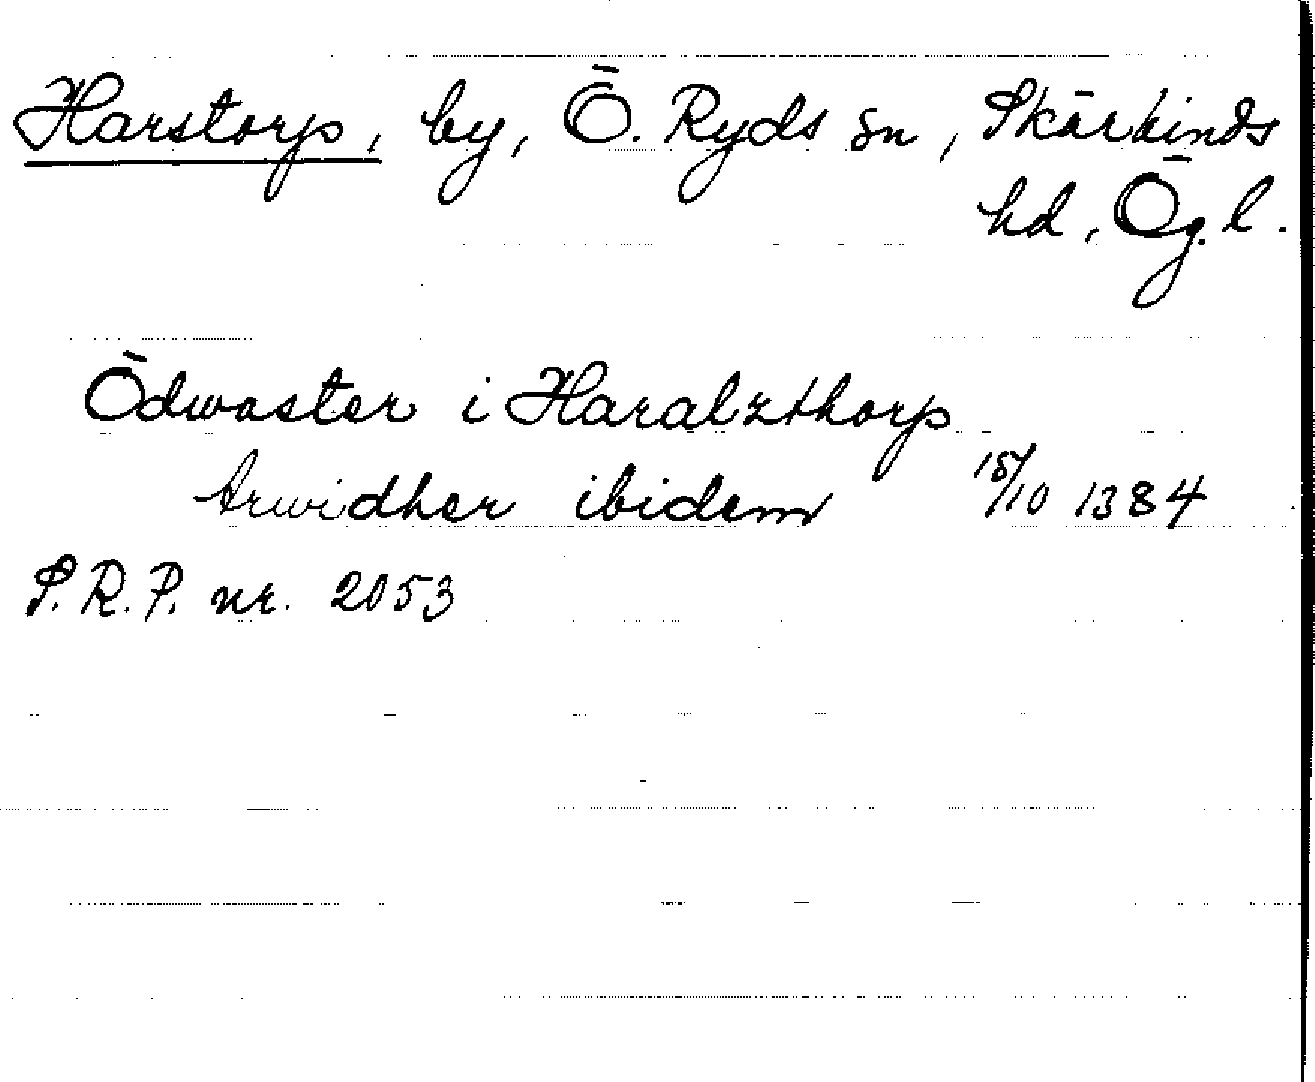 Harstorp, by, Ö. Ryds sn, Skärkinds
hd, Ög. l.
Ödwaster i Haralzthorp
Arwidher ibidem 15/10 1384
S.R.P. nr. 2053